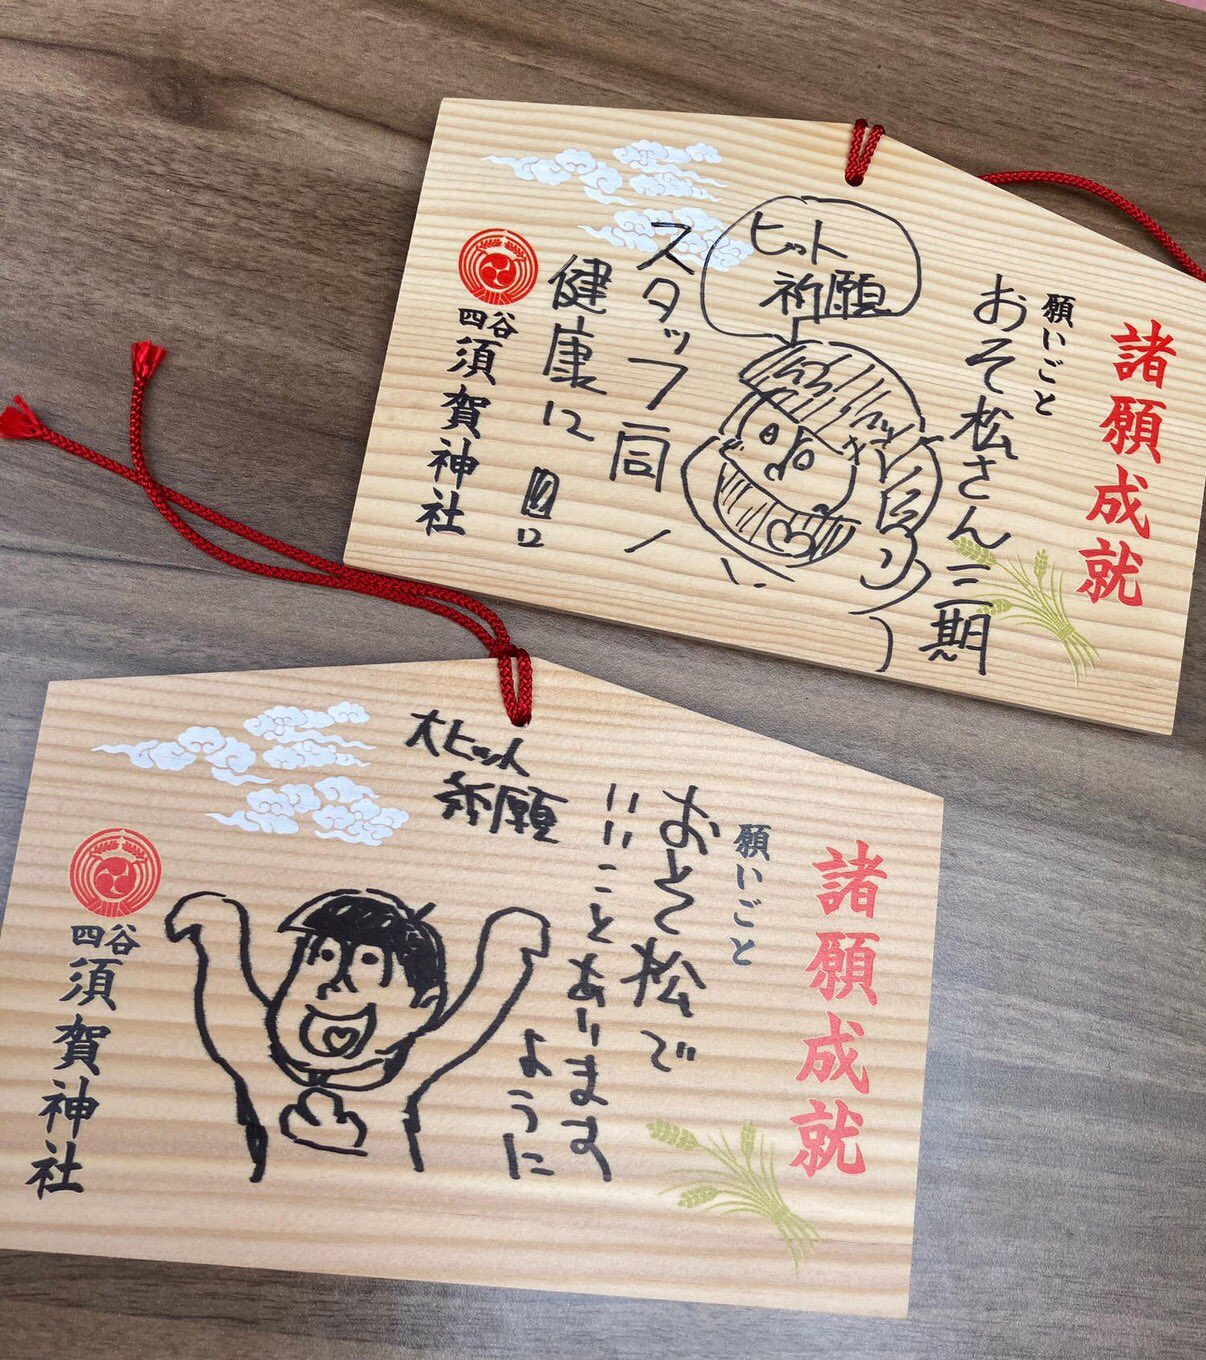 諸願成就
願いごと
おそ松さん三期
ヒット
祈願
スタッフ一同
健康に
四谷
須賀神社
諸願成就
願いごと
おそ松で
いいことあります
ように
大ヒット
祈願
四谷
須賀神社